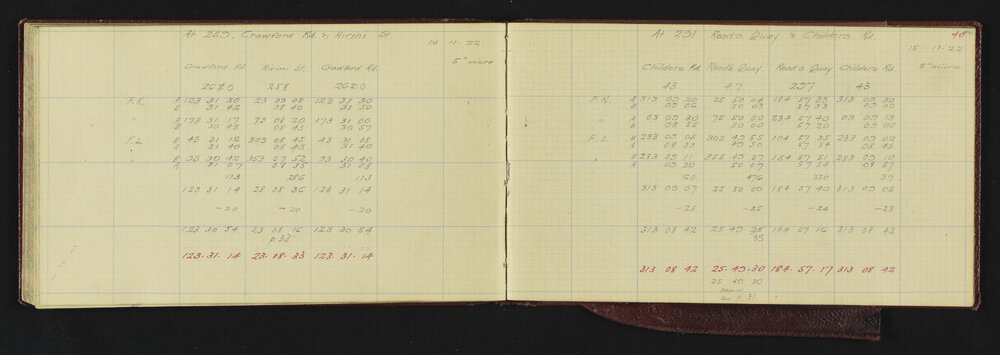 At 259, Crawford Rd. & Hirini St.
14 · 11 · 22
5" micro
Crawford Rd. Hirini St. Crawford Rd.
2620 258 2620
F.R. A 123 31 30 23 09 08 123 31 30
B 31 42 08 40 31 50
" A 173 31 17 73 08 20 173 31 00
B 30 43 08 43 30 57
F.L. B 43 31 12 303 08 45 43 31 08
A 31 40 08 45 31 40
" B 93 30 42 353 07 52 93 30 40
A 31 07 08 35 31 09
113 286 113
123 31 14 23 08 36 123 31 14
-20 -20 -20
123 30 54 23 08 16 123 30 54
123 · 31 · 14 23 · 08 · 33 123 · 31 · 14
40
At 291 Reads Quay & Childers Rd.
15 · 11 · 22
5" micro
Childers Rd. Reads Quay Reads Quay Childers Rd.
43 47 297 43
F.R. A 313 09 20 25 50 04 184 57 35 313 09 30
B 09 06 50 03 57 33 09 00
" A 03 09 30 75 50 00 234 57 40 03 09 13
B 08 55 50 00 57 20 09 00
F.L. B 233 09 05 305 49 55 104 57 35 233 09 02
A 08 33 49 50 57 54 08 45
" B 283 09 11 355 49 57 154 57 51 283 09 10
A 09 20 50 07 57 54 08 57
60 476 320 37
313 09 07 25 50 00 184 57 40 313 09 05
-25 -25 -24 -23
313 08 42 25 49 35 184 57 16 313 08 42
313 08 42 25 · 49 · 30 184 · 57 · 17 313 08 42
25 49 30